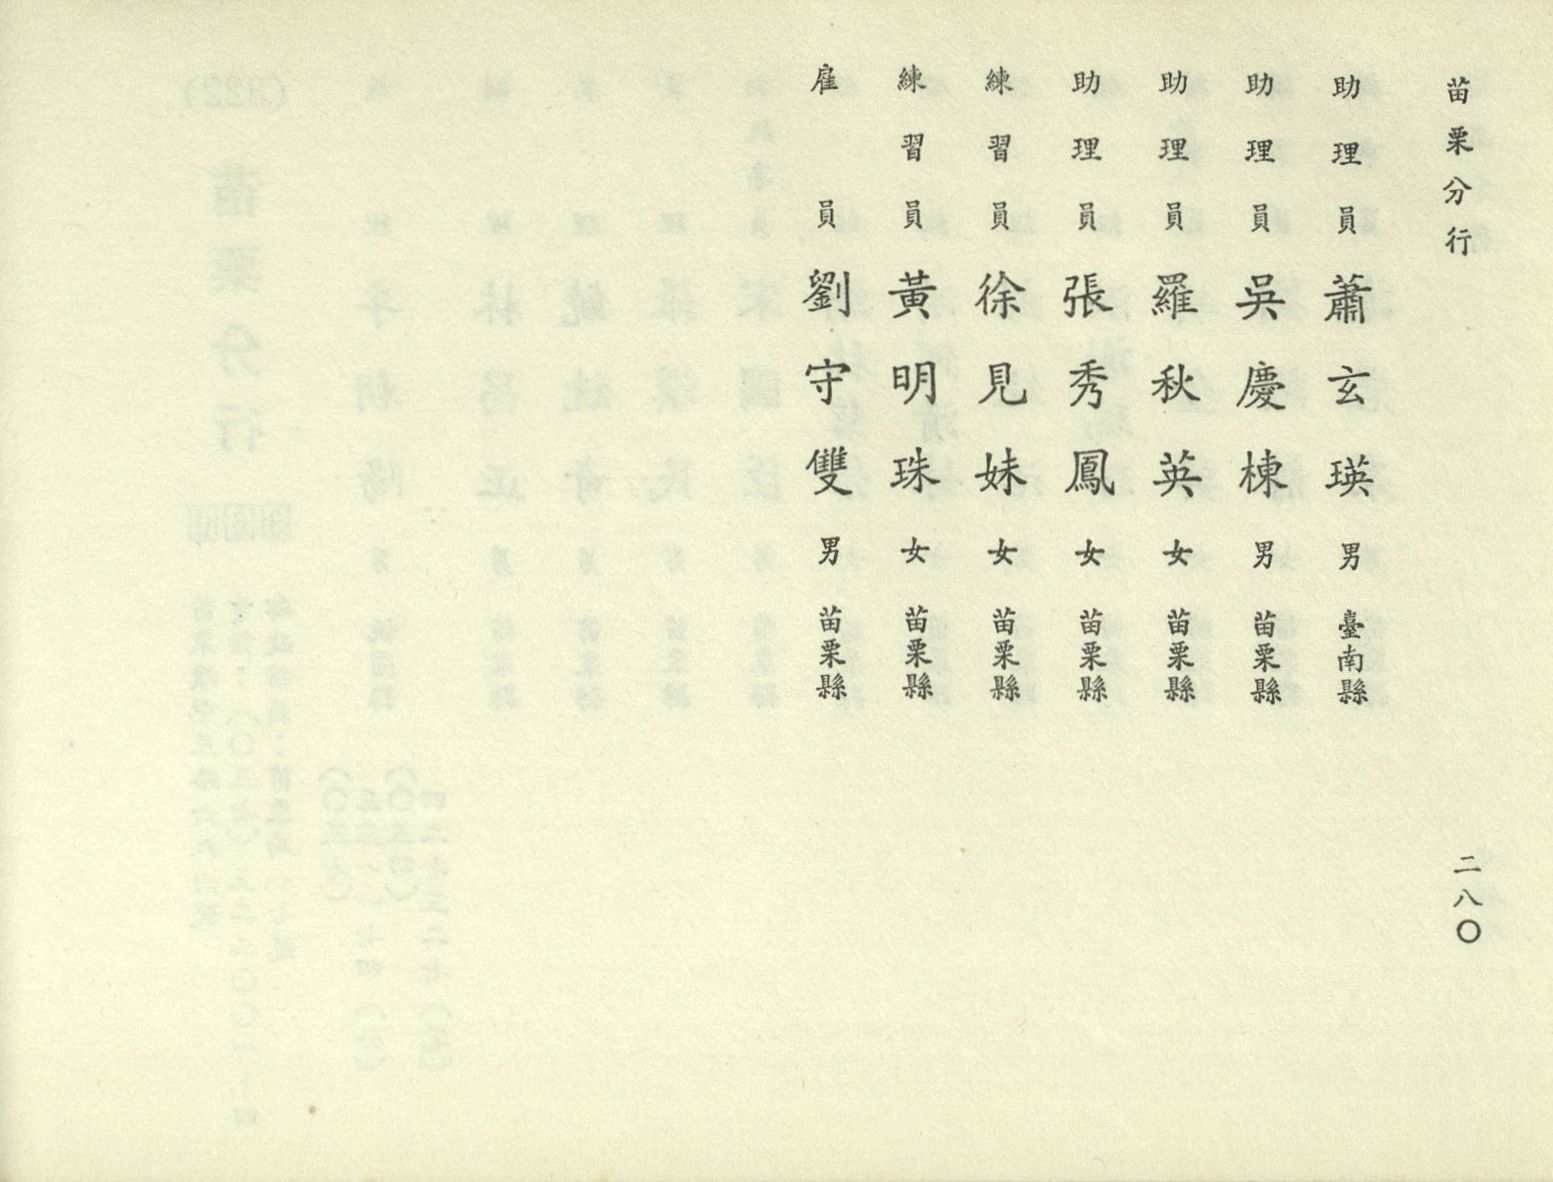 苗栗分行
二八〇
助理員 蕭玄瑛 男 臺南縣
助理員 吳慶棟 男 苗栗縣
助理員 羅秋英 女 苗栗縣
助理員 張秀鳳 女 苗栗縣
練習員 徐見妹 女 苗栗縣
練習員 黃明珠 女 苗栗縣
雇員 劉守雙 男 苗栗縣